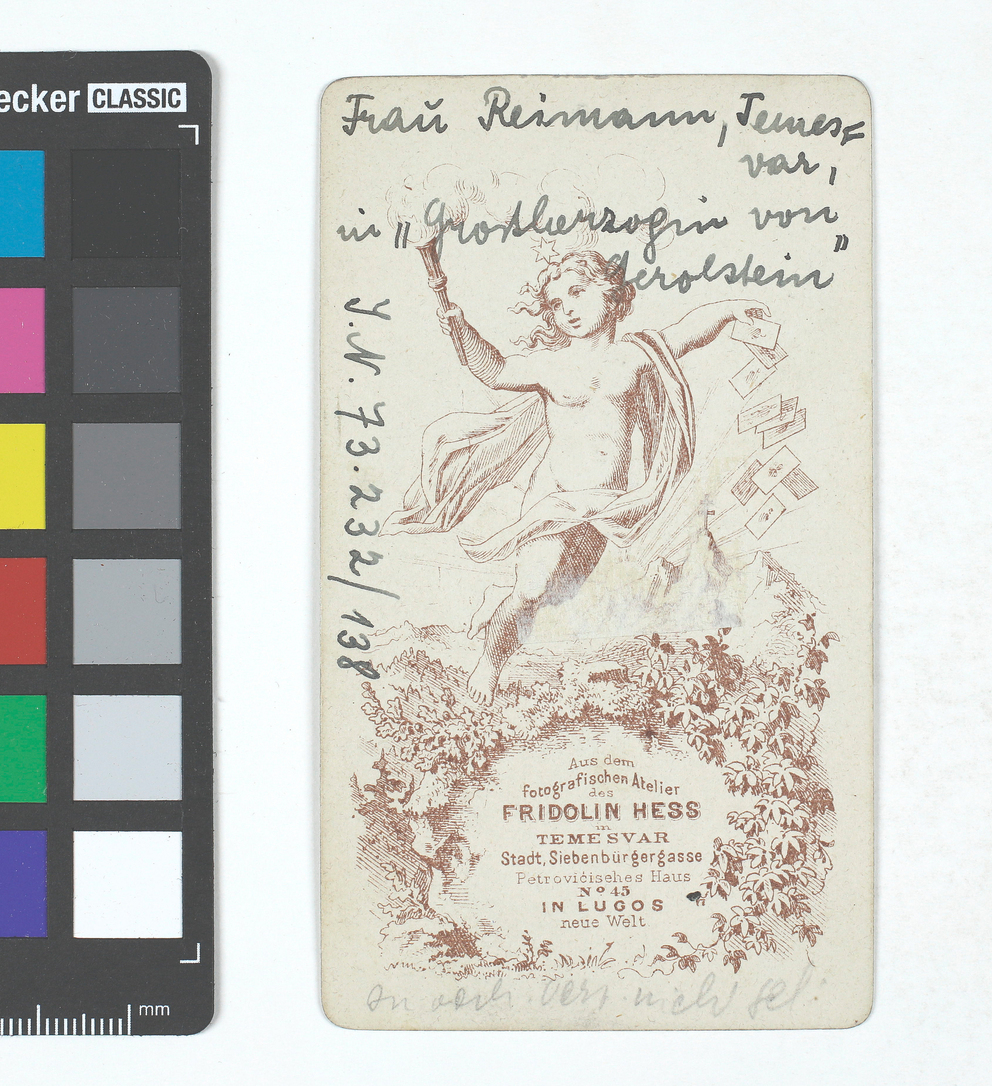 ecker CLASSIC
mm
Fraŭ Reimann, Temes=
var,
in „Großherzogin von
Gerolstein"
J.N. 73.232/138
Aus dem
fotografischen Atelier
des
FRIDOLIN HESS
in
TEMESVAR
Stadt, Siebenbürgergasse
Petrovićisches Haus
No 45
IN LUGOS
neue Welt
nicht